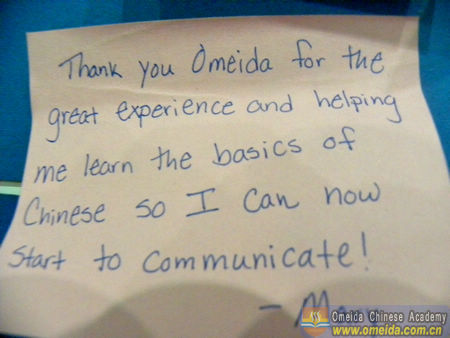 Thank you Omeida for the
great experience and helping
me learn the basics of
Chinese so I can now
start to communicate!
Omeida Chinese Academy
www.omeida.com.cn